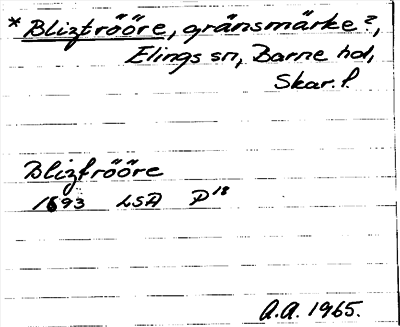 * Bliztrööre, gränsmärke?,
Elings sn, Barne hd,
Skar. l.
Bliztrööre
1693 LSA P18
A.A. 1965.